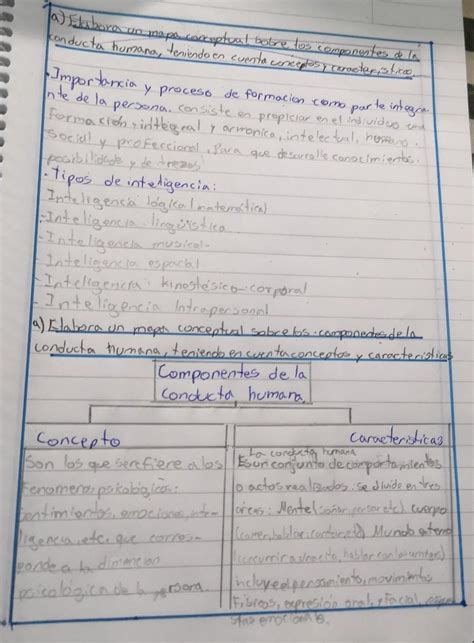 a) Elabora un mapa conceptual sobre los componentes de la
conducta humana, teniendo en cuenta conceptos y características.
• Importancia y proceso de formación como parte integra-
nte de la persona. consiste en propiciar en el individuo una
Formación, integral y armonica, intelectual, humano.
Social y profeccional, para que desarrolle conocimientos.
posibilidades y de trezas
• Tipos de inteligencia:
Inteligencia lógica (matemática)
- Inteligencia lingüística
- Inteligencia musical-
Inteligencia espacial
- Inteligencia kinestésico-corporal
- Inteligencia Intrapersonal
a) Elabora un mapa conceptual sobre los componentes de la
conducta humana, teniendo en cuenta conceptos y características
Componentes de la
conducta humana.
Concepto
Son los que se refiere a los
Fenomenos psicologicos:
sentimientos, emociones, inte-
ligencia, etc. que corres-
ponde a la dimencion
psicologica de la persona.
Características
La conducta humana
Es un conjunto de comportamientos
o actos realizados. se divide en tres
areas: Mente (soñar, pensar etc) cuerpo
(comer, hablar, etc) Mundo externo
(concurrir a un hablar con los
incluye el pensamiento, movimientos
Fisicos, expresión oral y Facial,
emocionales.